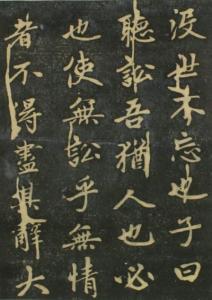 没世不忘也子曰
聽訟吾猶人也必
也使無訟乎無情
者不得盡其辭大